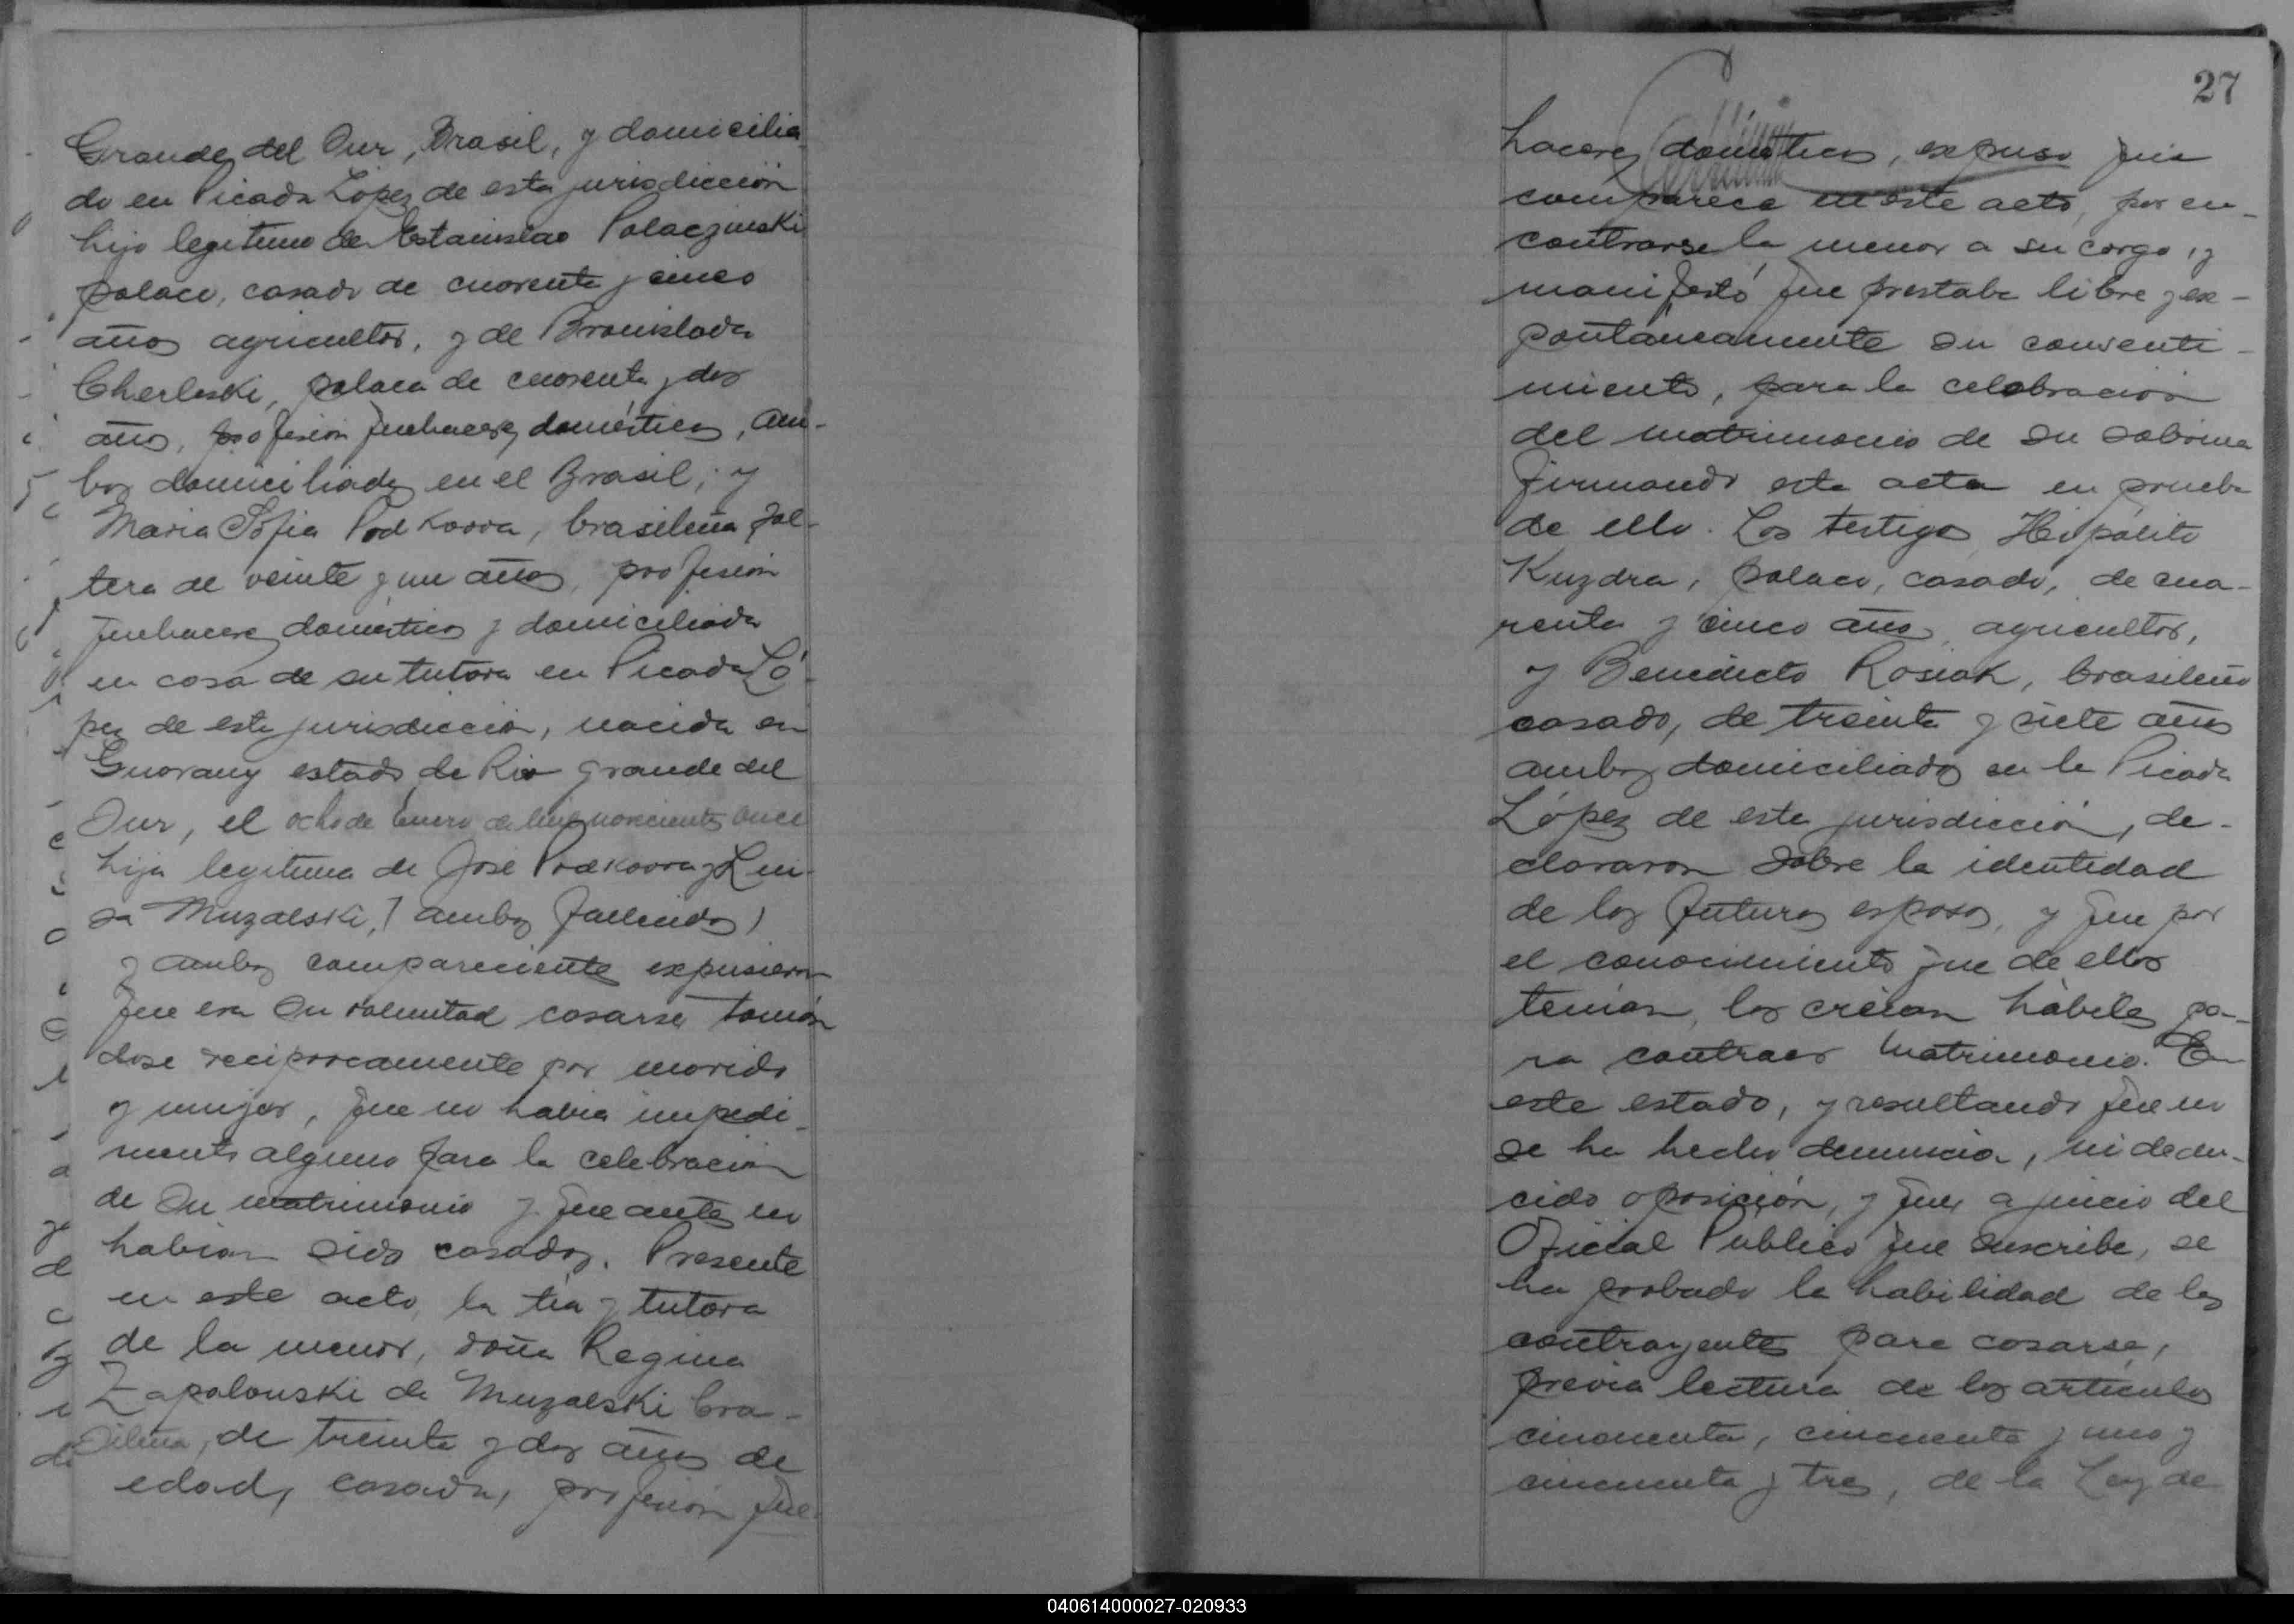 Grande del Sur, Brasil, y domicilia
do en Picada López de esta jurisdicción
hijo legitimo de Estanislao Polaczinski
polaco, casado de cuarenta y cinco
años agricultor, y de Bronislada
Cherleski, polaca de cuarenta y dos
años, profesion quehaceres domésticos, am-
bos domiciliados en el Brasil; y
Maria Sofia Podkowa, brasileña, sol-
tera de veinte y un años, profesion
quehaceres domésticos y domiciliada
en casa de su tutora en Picada Ló-
pez de esta jurisdiccion, nacida en
Guarany estado de Rio grande del
Sur, el ocho de Enero de mil novecientos once
hija legitima de José Podkowa y Lui-
sa Muzalski, (ambos fallecidos)
y ambos comparecientes expusieron
que era su voluntad casarse toman
dose reciprocamente por marido
y mujer, que no habia impedi-
mento alguno para la celebracion
de su matrimonio y que antes no
habian sido casados. Presente
en este acto, la tia y tutora
de la menor, doña Regina
Zapalouski de Muzalski bra-
sileña, de treinta y dos años de
edad, casada, profesion que
27
haceres domésticos, expuso que
comparece en este acto, por en-
contrarse la menor a su cargo, y
manifestó que prestaba libre y es-
pontáneamente su consenti-
miento, para la celebracion
del matrimonio de su sobrina
firmando esta acta en prueba
de ello. Los testigos Hipólito
Kuzdra, polaco, casado, de cua-
renta y cinco años agricultor,
y Benedicto Rosiak, brasileño
casado, de treinta y siete años
ambos domiciliados en la Picada
López de esta jurisdicción, de-
clararon sobre la identidad
de los futuros esposos, y que por
el conocimiento que de ellos
tenían, los creían hábiles pa-
ra contraer matrimonio. En
este estado, y resultando que no
se ha hecho denuncia, ni dedu-
cido oposición, y que, a juicio del
Oficial Público que suscribe, se
ha probado la habilidad de los
contrayentes para casarse,
previa lectura de los artículos
cincuenta, cincuenta y uno y
cincuenta y tres, de la Ley de
040614000027-020933